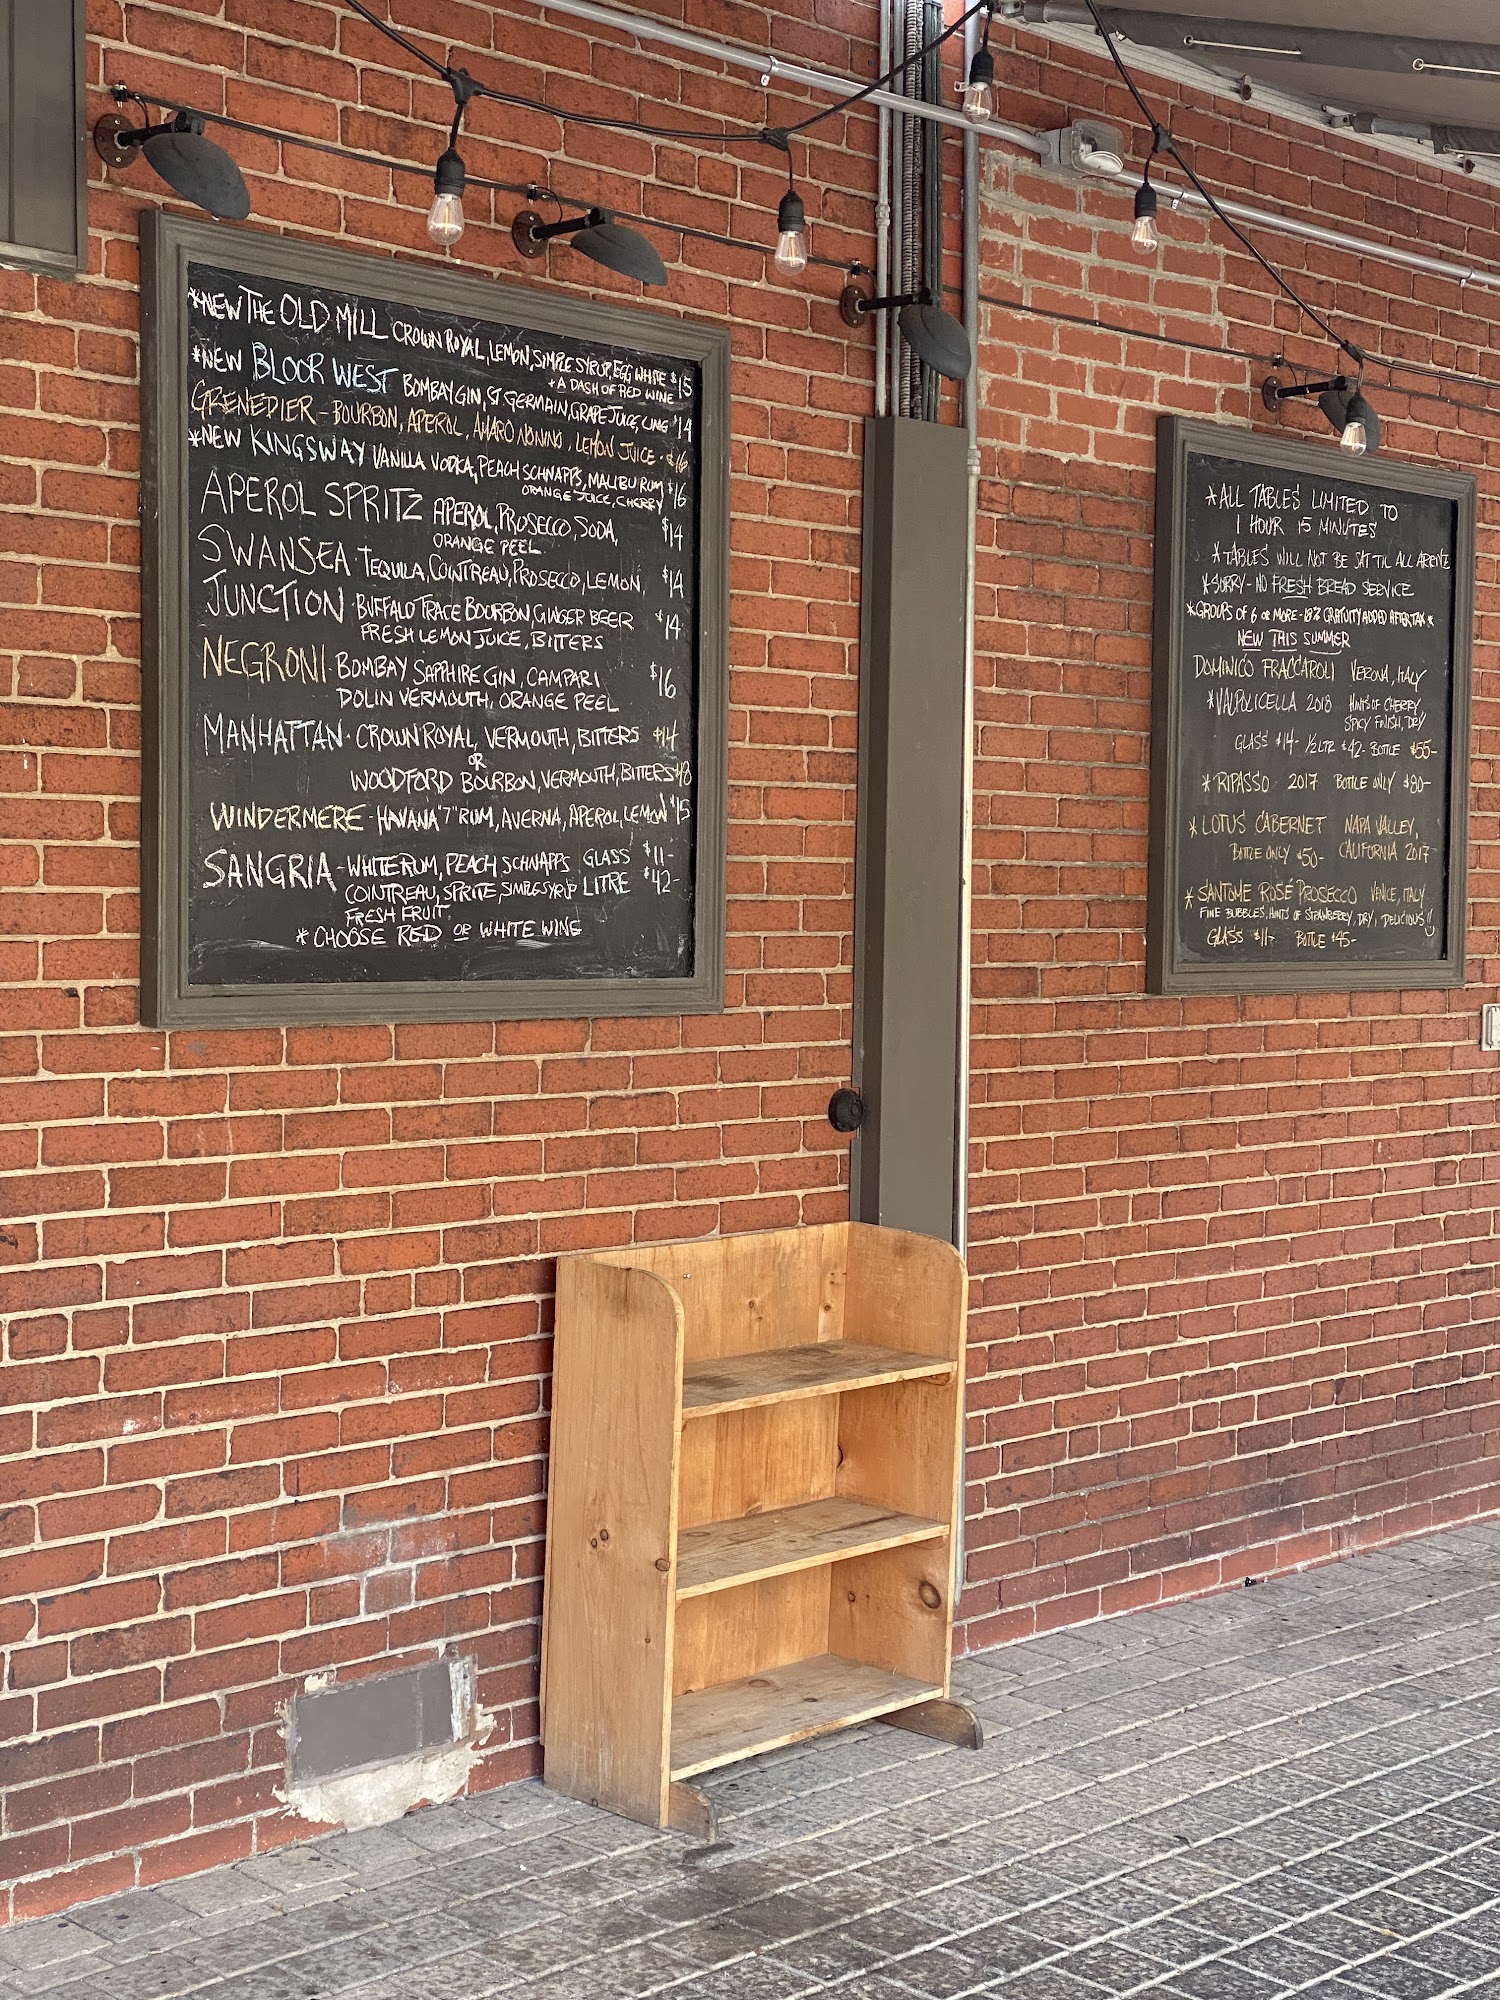 *NEW THE OLD MILL CROWN ROYAL, LEMON, SIMPLE SYRUP, EGG WHITE $15
+ A DASH OF RED WINE
*NEW BLOOR WEST BOMBAY GIN, ST GERMAIN, GRAPE JUICE, LING $14
GRENEDIER - BOURBON, APEROL, AMARO NONINO, LEMON JUICE · $16
*NEW KINGSWAY VANILLA VODKA, PEACH SCHNAPPS, MALIBU RUM $16
ORANGE JUICE, CHERRY
APEROL SPRITZ APEROL, PROSECCO, SODA, $14
ORANGE PEEL
SWANSEA · TEQUILA, COINTREAU, PROSECCO, LEMON, $14
JUNCTION · BUFFALO TRACE BOURBON, GINGER BEER $14
FRESH LEMON JUICE, BITTERS
NEGRONI · BOMBAY SAPPHIRE GIN, CAMPARI $16
DOLIN VERMOUTH, ORANGE PEEL
MANHATTAN · CROWN ROYAL, VERMOUTH, BITTERS $14
OR
WOODFORD BOURBON, VERMOUTH, BITTERS
WINDERMERE - HAVANA "7" RUM, AVERNA, APEROL, LEMON $15
SANGRIA - WHITE RUM, PEACH SCHNAPPS GLASS $11-
COINTREAU, SPRITE, SIMPLE SYRUP LITRE $42-
FRESH FRUIT
* CHOOSE RED OR WHITE WINE
*ALL TABLES LIMITED TO
1 HOUR 15 MINUTES
*TABLES WILL NOT BE SAT TIL ALL ARRIVE
*SORRY - NO FRESH BREAD SERVICE
*GROUPS OF 6 OR MORE - 18% GRATUITY ADDED AFTER TAX *
NEW THIS SUMMER
DOMINICO FRACCAROLI VERONA, ITALY
*VALPOLICELLA 2018 HINTS OF CHERRY,
SPICY FINISH, DRY
GLASS $14- 1/2 LTR $42- BOTTLE $55-
*RIPASSO 2017 BOTTLE ONLY $80-
*LOTUS CABERNET NAPA VALLEY,
BOTTLE ONLY $50- CALIFORNIA 2017
*SANTOME ROSÉ PROSECCO VENICE, ITALY
FINE BUBBLES, HINTS OF STRAWBERRY, DRY, DELICIOUS!!
GLASS $11- BOTTLE $45-